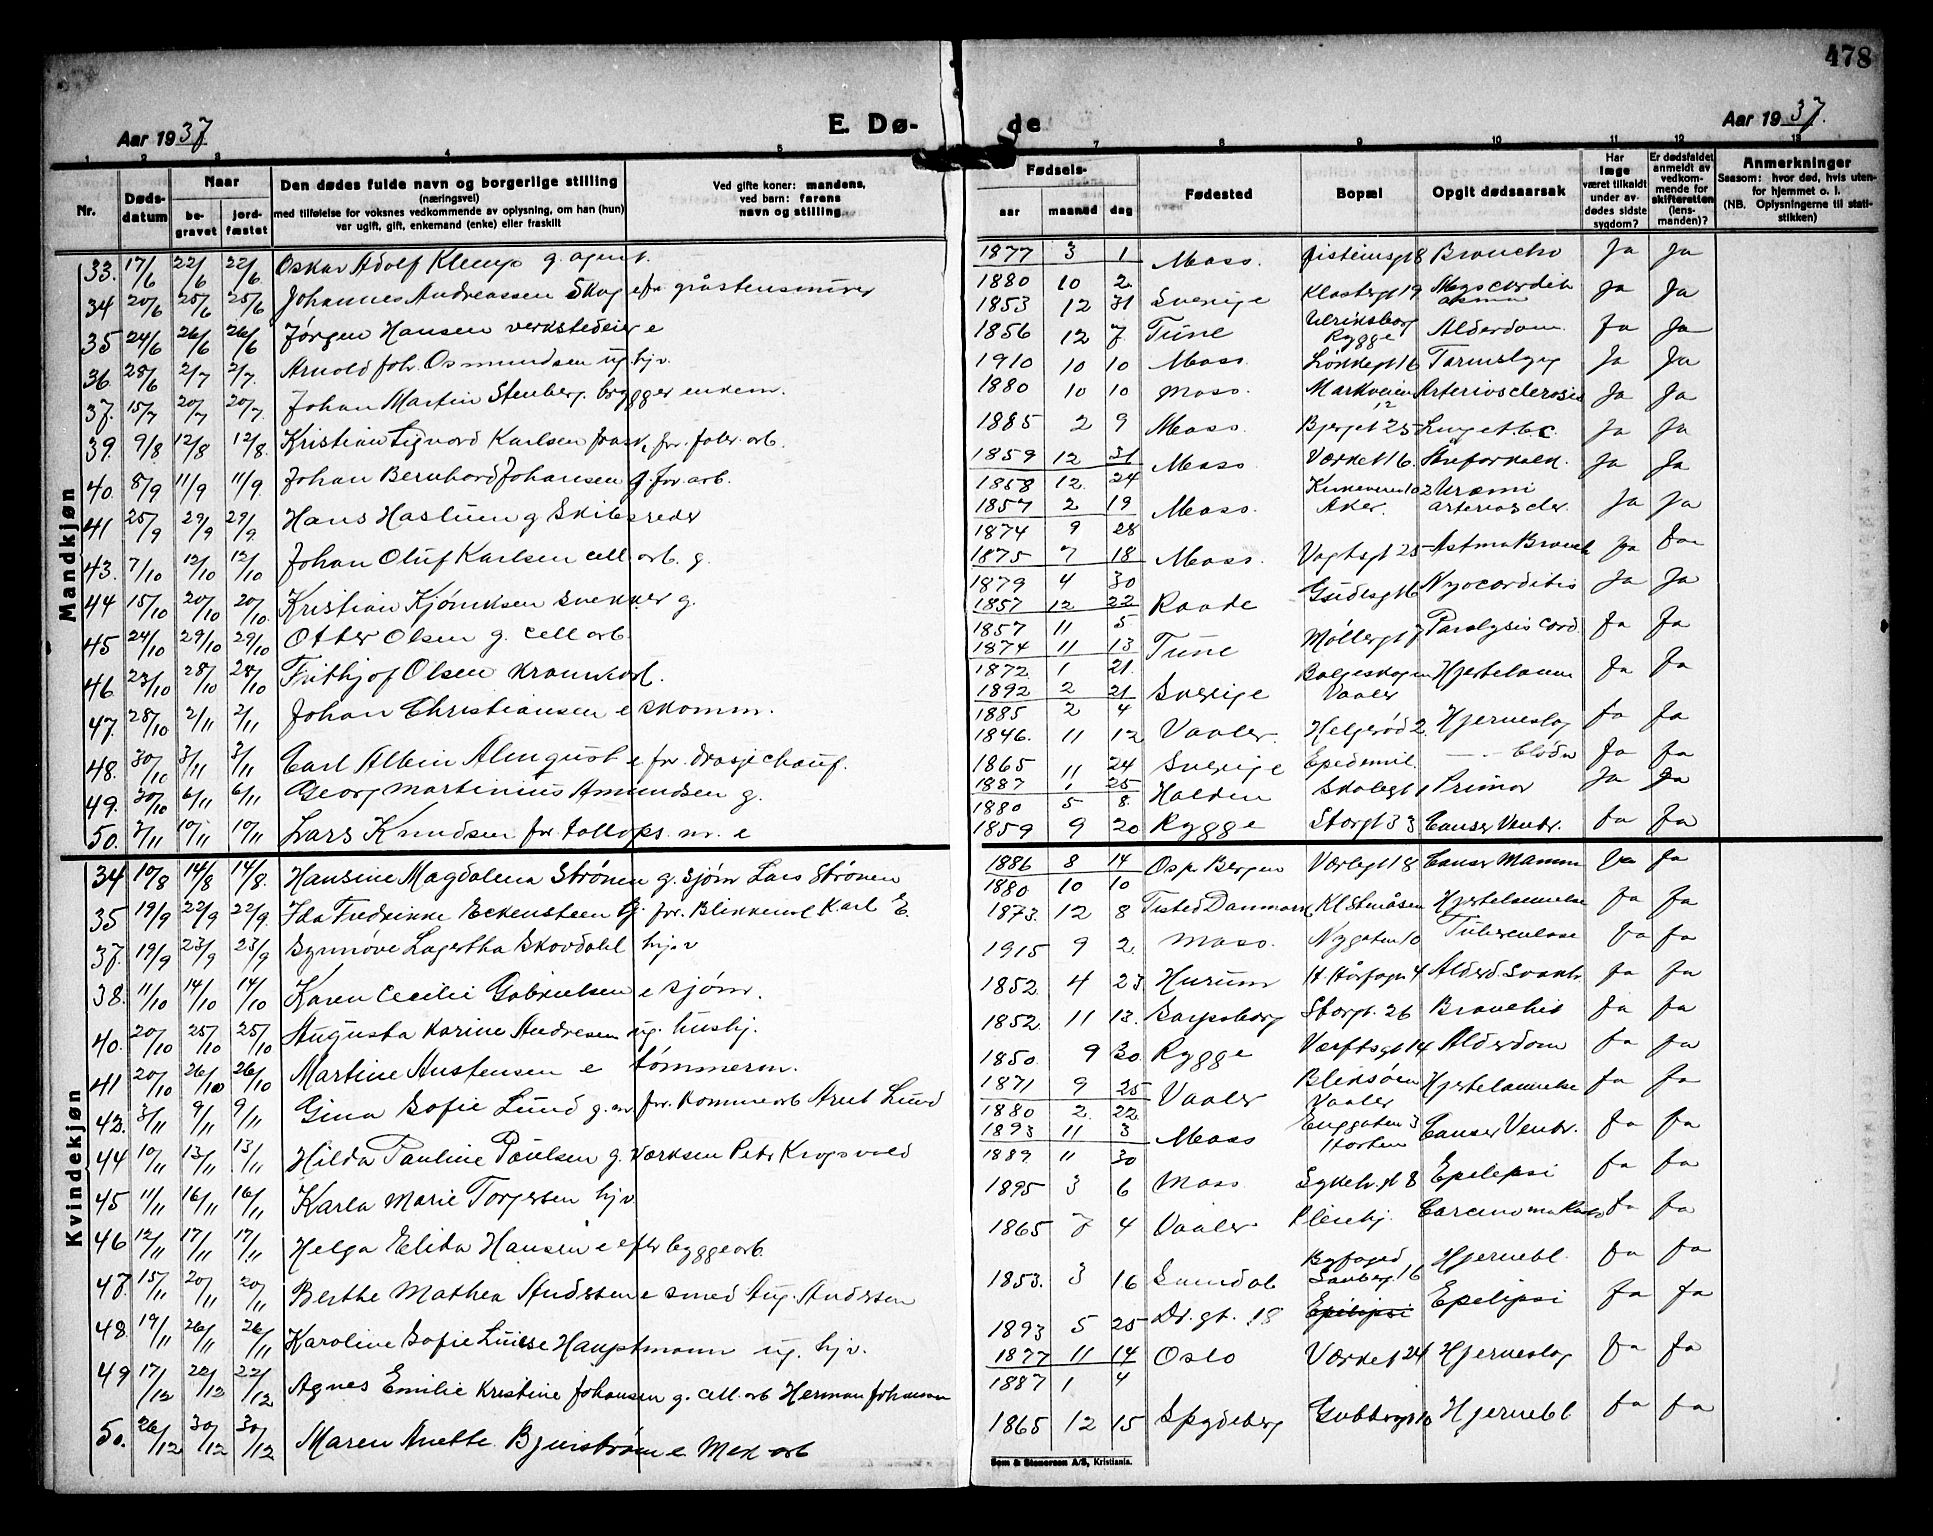 478
Aar 1937
E. Dø-
de
Aar 1937.
1 2 3 4 5 7 8 9 10 11 12 13
Nr.
Døds-
datum
Naar
be-
gravet
jord-
fæstet
Den dødes fulde navn og borgerlige stilling
(næringsvei)
med tilføielse for voksnes vedkommende av oplysning, om han (hun)
var ugift, gift, enkemand (enke) eller fraskilt
Ved gifte koner: mandens,
ved barn: farens
navn og stilling
Fødsels-
aar
maaned
dag
Fødested
Bopæl
Opgit dødsaarsak
Har
læge
været tilkaldt
under av-
dødes sidste
sygdom?
Er dødsfaldet
anmeldt av
vedkom-
mende for
skifteretten
(lens-
manden)?
Anmerkninger
Seasom: hvor død, hvis uten-
for hjemmet o. l.
(NB. Oplysningerne til stati-
stikken)
Mandkjøn
33. 17/6 22/6 22/6 Oskar Adolf Klemp g. agent. 1877 3 1 Moss. Ja Ja
34 20/6 25/6 25/6 Johannes Andreassen Skog 1880 10 2 1853 12 31 Sverige Klostergt 19 Ja Ja
35 24/6 26/6 26/6 Jørgen Hansen verkstedeier e 1856 12 7 Tune Rygge Alderdom. Ja Ja
36. 28/6 2/7 2/7. Arnold Joh. Osmundsen ug. hjv. 1910 10 10 Moss. Ja Ja
37. 15/7 20/7 20/7. Johan Martin Stenberg brygger enkem. 1880 10 10 Moss. Markveien 12 Arteriosclerosis Ja Ja
39. 9/8 12/8 12/8. Kristian Sigvard Karlsen frask. for. fabr. arb. 1885 2 9 Moss. Ja Ja
40. 8/9 11/9 11/9. Johan Bernhard Johansen g. for. arb. 1859 12 31 Moss. Værket 16. Ja Ja
1858 12. 24
41 25/9 29/9 29/9. Hans Haslum g Skibsreder 1857 2 19 Moss. Aker. Uræmi arterioscler. Ja Ja
1874 9 28
43. 7/10 12/10 12/10 Johan Oluf Karlsen cell. arb. g. 1875 7 18 Moss. Vogtsgt 25 Astma Bronch Ja Ja
1879 4 30
44 15/10 20/10 20/10. Kristian Kjøniksen snekker g. 1857 12 22 Raade Gudesgt 16 Myocarditis Ja Ja
1857 11 5
45 24/10 29/10 29/10 Otter Olsen g. cell arb. 1874 11 13 Tune Møllergt 7 Paralysis cord. Ja Ja
1872 1 21
46 23/10 28/10 28/10 Frithjof Olsen 1892 2 21 Sverige Vaaler Hjertelamm Ja Ja
1885 2 4
47. 28/10 2/11 2/11 Johan Christiansen e skomm. 1846. 11 12 Vaaler. Helgerød 2 Hjerneslag Ja Ja
48. 30/10 3/11 3/11 Carl Albin Almqvist e for. drosjechauf. 1865 11 24 Sverige Epidemil. Ja Ja
1887 1 25
49. 30/10 6/11 6/11 Georg Martinius Amundsen g. 1880 5 8. Halden Skolegt 1 Ja Ja
50. 3/11 10/11 10/11 Lars Knudsen for. tollops. m. e 1859 9 20 Rygge Storgt 33 Canser Ventr. Ja Ja
Kvindekjøn
34 10/8 14/8 14/8. Hansine Magdalena Strønen g. sjøm Lars Strønen 1886 8 14 Bergen Værlegt 18 Canser Mamm Ja Ja
1880 10 10
35 19/9 22/9 22/9. Ida Fredrikke Eckensteen g. for. Blikkensl Karl E. 1873. 12 8 Tisted Danmark Hjertelammelse Ja Ja
37. 19/9 23/9 23/9 Synnøve Lagertha Skovdahl hjv 1915 9 2. Moss. Nygaten 10 Tuberculose Ja Ja
38. 11/10 14/10 14/10 Karen Cecilie Gabrielsen e sjøm. 1852. 4 23 Hurum Alderd. Ja Ja
40. 20/10 25/10 25/10 Augusta Karine Andresen ug. hushj. 1852. 11 13. Sarpsborg Storgt. 26 Bronchit Ja Ja
41 20/10 26/10 26/10 Martine Austensen e tømmerm. 1850. 9 30 Rygge Værftsgt 14 Alderdom Ja Ja
1871 9 25 Vaaler Vaaler Hjertelammelse Ja Ja
42. 3/11 9/11 9/11 Gina Sofie Lund g. 1880 2. 22
1893 11 3 Moss Enggaten 3 Horten Canser Ventr. Ja Ja
44 10/11 13/11 13/11 Hilda Pauline Paulsen g. 1889 11 30
45 11/11 16/11 16/11 Karla Marie Torgersen hjv 1895 3 6 Moss Sykehgt 8 Epilepsi Ja Ja
46 12/11 17/11 17/11 Helga Elida Hansen e efter byggearb. 1865 7 4 Vaaler Pleiehj. Ja Ja
47. 15/11 20/11 20/11 Berthe Mathea Andersen e smed Aug. Andersen 1853. 3 16 Hjernebl. Ja Ja
48. 19/11 26/11 26/11 Karoline Sofie Luise Hauptmann ug. hjv. 1893 5 25 Dr. gt. 18 Epilepsi Epilepsi Ja Ja
49 17/12 22/12 22/12 Agnes Emilie Kristine Johansen g. cell. arb Herman Johansen 1877 11 14 Oslo Værket 24 Hjerneslag Ja Ja
1887 1 4
50. 26/12 30/12 30/12 Maren Anette Bjurstrøm e. Mek arb 1865 12 15 Spydeberg Hjernebl Ja Ja
Sem & Stenersen A/S, Kristiania.